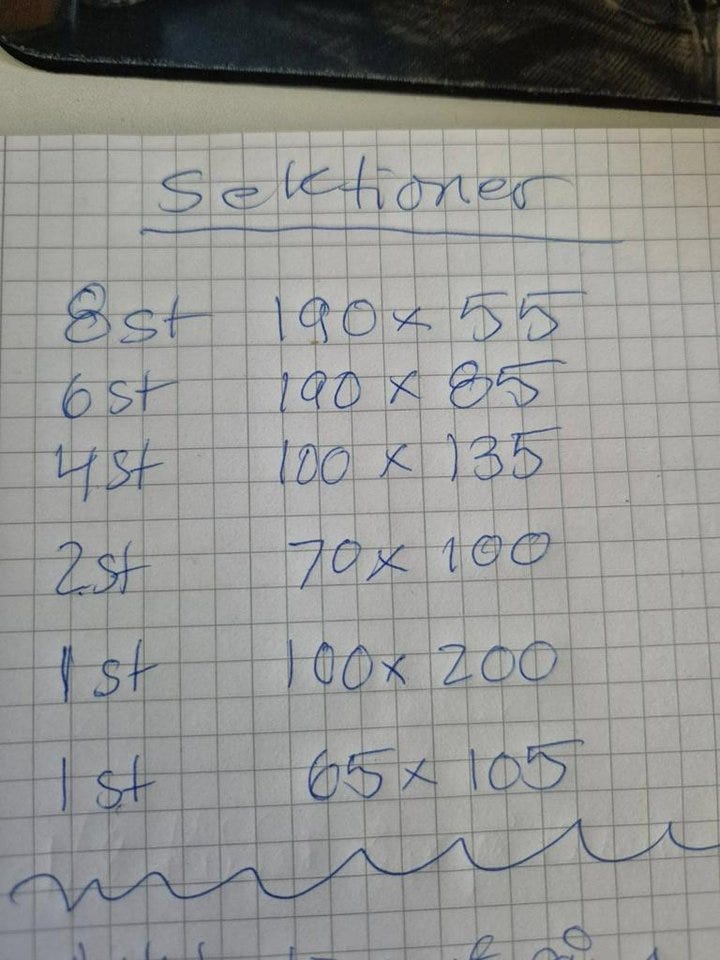 Sektioner
8st 190 x 55
6st 190 x 85
4st 100 x 135
2st 70 x 100
1st 100 x 200
1st 65 x 105